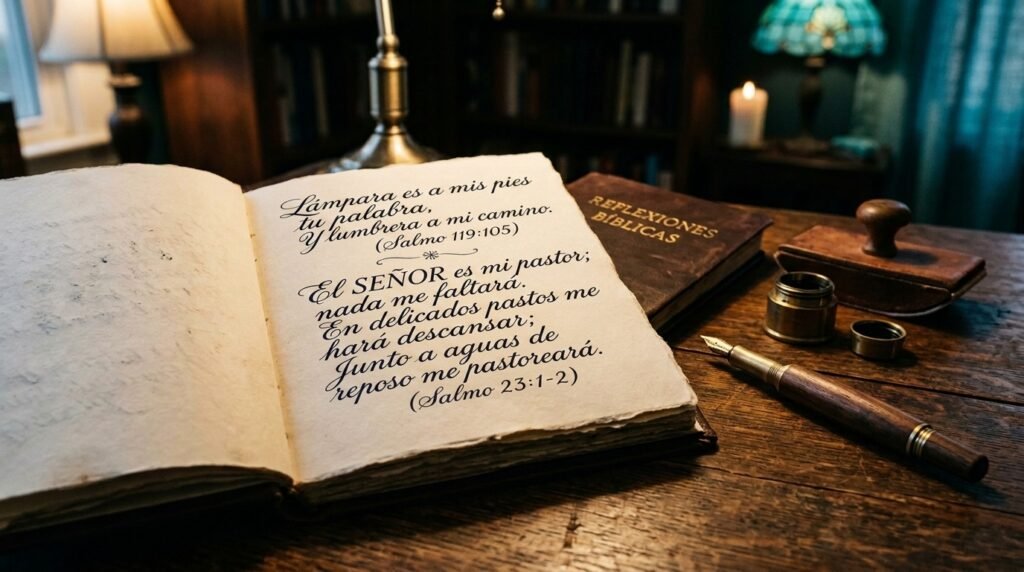 Lámpara es a mis pies
tu palabra,
Y lumbrera a mi camino.
(Salmo 119:105)
El SEÑOR es mi pastor;
nada me faltará.
En delicados pastos me
hará descansar;
Junto a aguas de
reposo me pastoreará.
(Salmo 23:1-2)
REFLEXIONES
BÍBLICAS